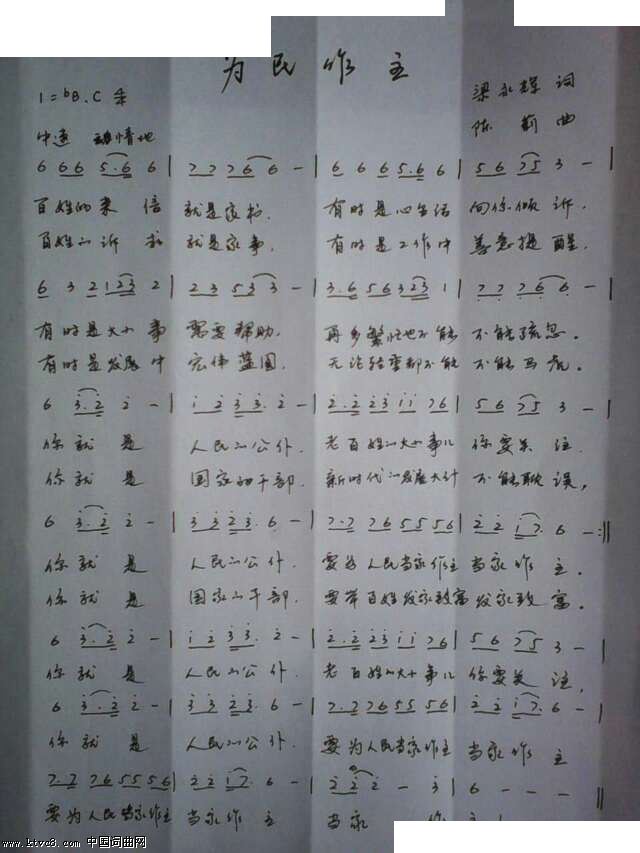 为民作主
1=bB、C 4/4
梁永辉 词
中速 动情地
陈莉 曲
6 6 6 5·6 6 | 7 7 7 6 6 - | 6 6 6 5·6 6 | 5 6 7 5 3 - |
百姓的来信 就是家书. 有时是心生活 向你倾诉.
百姓的诉求 就是家事. 有时是工作中 善意提醒.
6 3 2 1 2 3 2 | 2 3 5 3 3 - | 3·6 5 6 3 2 3 1 | 7 7 7 6 6 - |
有时是大小事 需要帮助. 再多繁忙也不能 不能疏忽.
有时是发展中 宏伟蓝图. 无论结果都不能 不能马虎.
6 3·2 2 - | 1 2 3 3·2 - | 2·2 2 3 1 1 7 6 | 5 6 7 5 3 - |
你就是 人民的公仆. 老百姓的大小事儿 你要关注.
你就是 国家的干部. 新时代的发展大计 不能耽误,
6 3·2 2 - | 3 3 2 3·6 - | 7·7 7 6 5 5 5 6 | 2 2 1 7·6 - :||
你就是 人民的公仆. 要为人民当家作主 当家作主.
你就是 国家的干部. 要带百姓发家致富 发家致富.
6 3·2 2 - | 1 2 3 3·2 - | 2·2 2 3 1 1 7 6 | 5 6 7 5 3 - |
你就是 人民的公仆. 老百姓的大小事儿 你要关注,
6 3·2 2 - | 3 3 2 3·6 - | 7·7 7 6 5 5 5 6 | 2 2 1 7·6 - |
你就是 人民的公仆. 要为人民当家作主 当家作主
7·7 7 6 5 5 5 6 | 2 2 1 7·6 - | 2 2 2 - 3 | 6 - - - ||
要为人民当家作主 当家作主 当家 作
www.ktvc8.com 中国词曲网